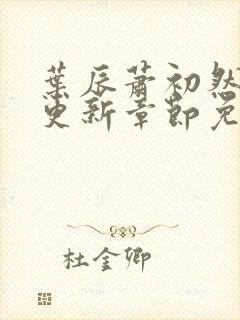 葉辰蕭初然
更新章節免
杜金卿